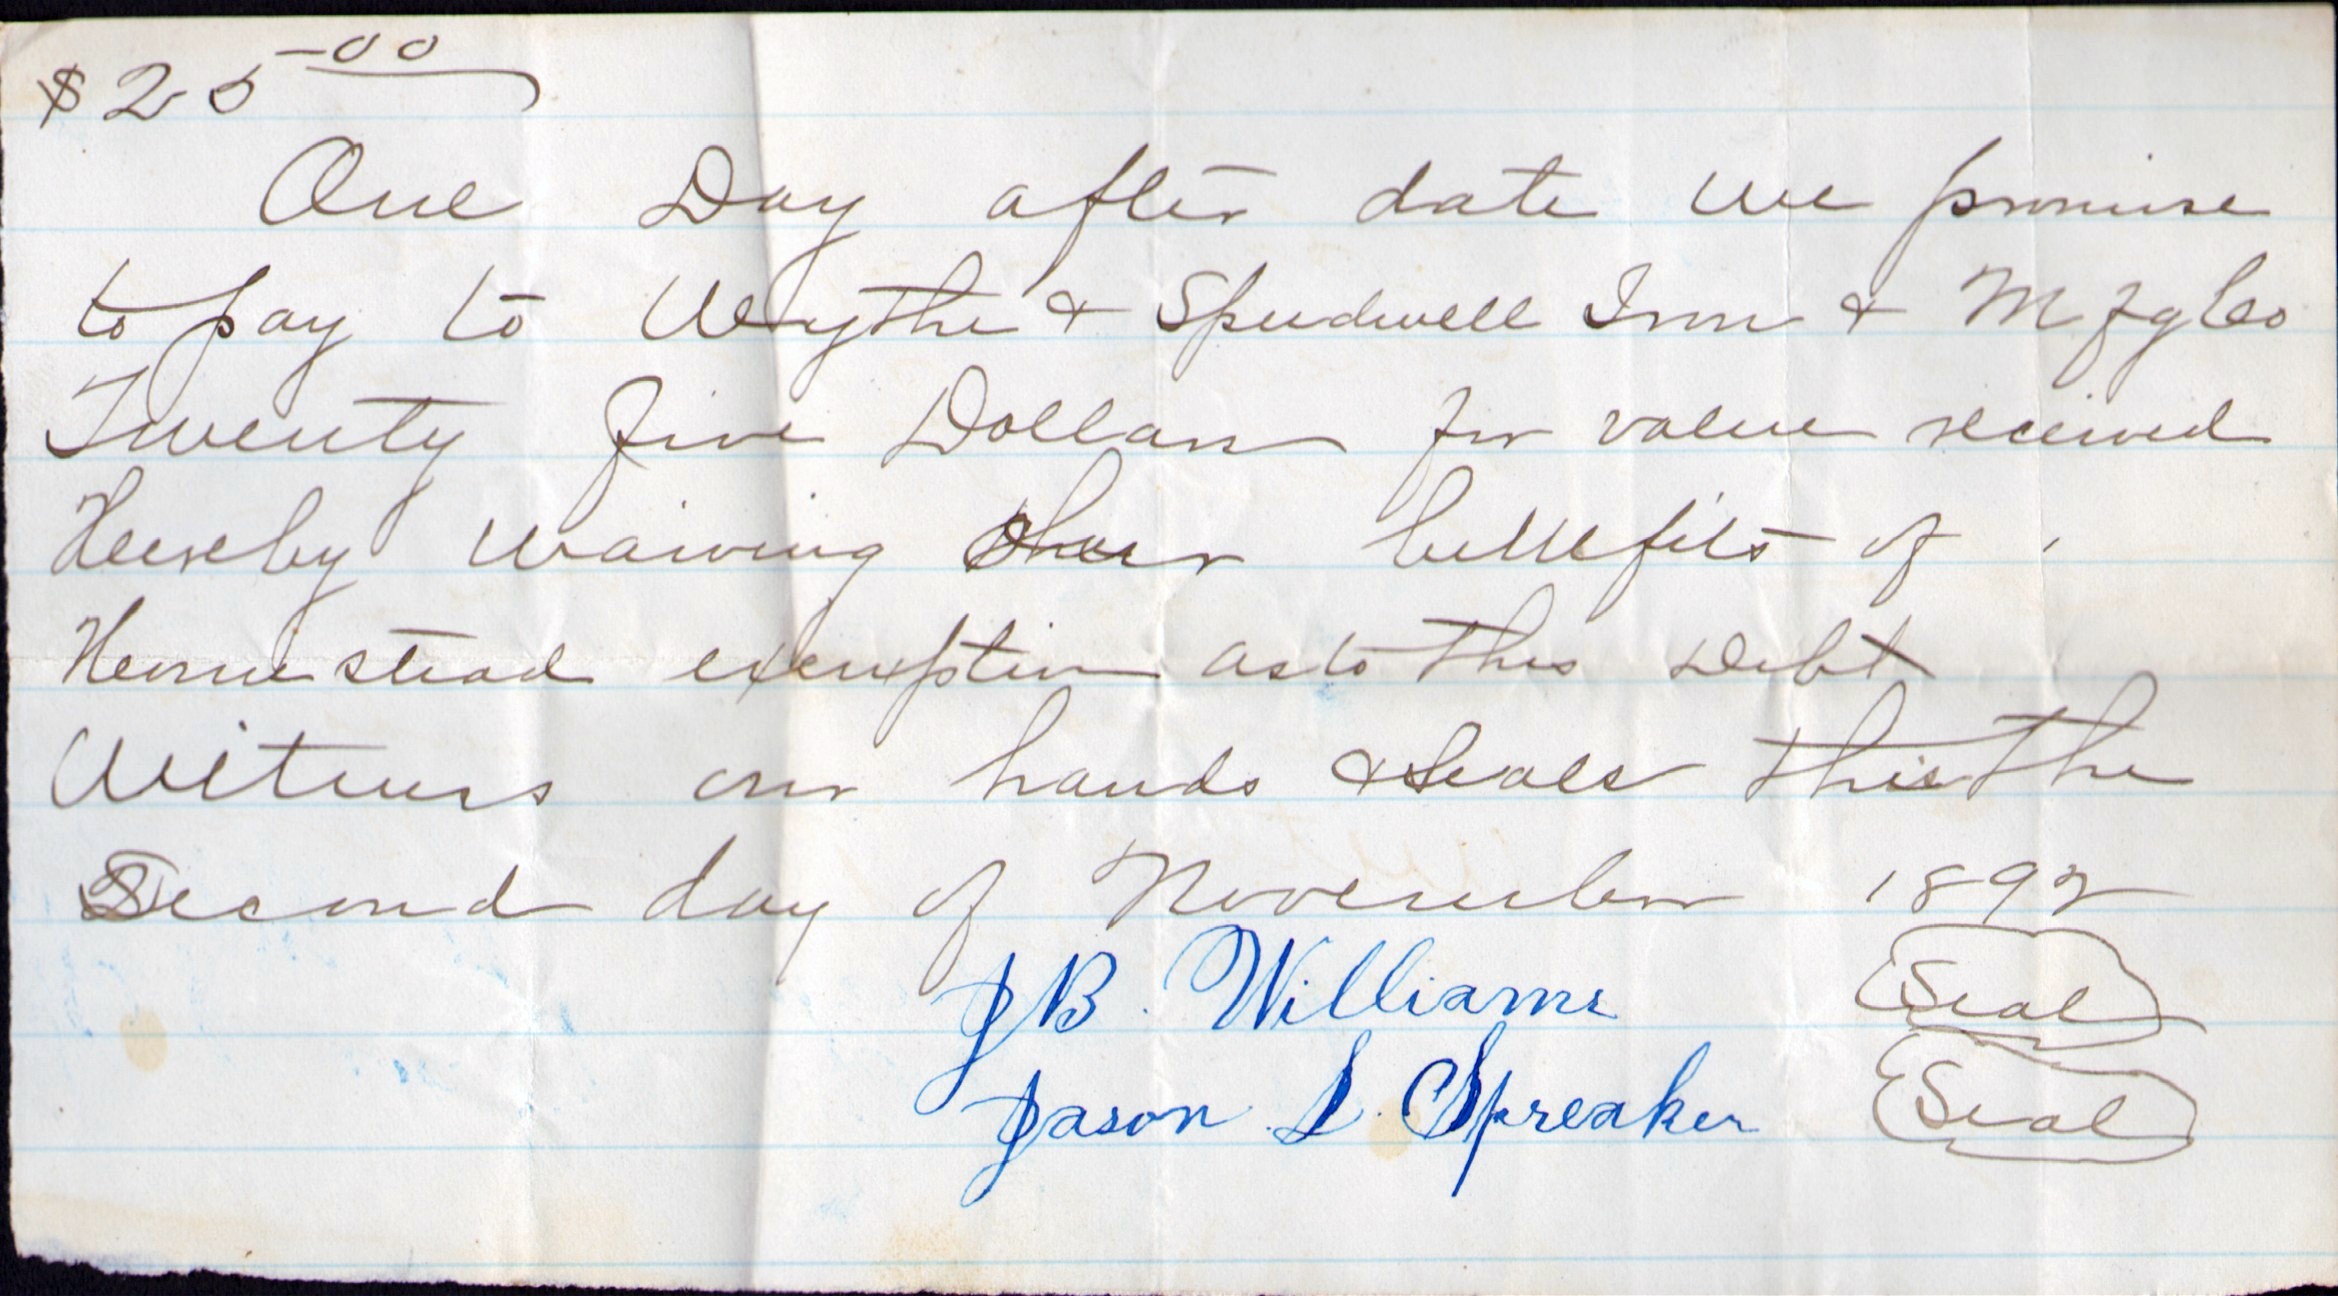 $25-00
One Day after date we promise
to pay to Wythe & Speedwell Iron & Mfg Co
Twenty five Dollars for value received
Hereby waiving the benefits of
Homestead exemption as to this Debt
Witness our hands & Seals this the
Second day of November 1892
JB. Williams Seal
Jason L. Spreaker Seal